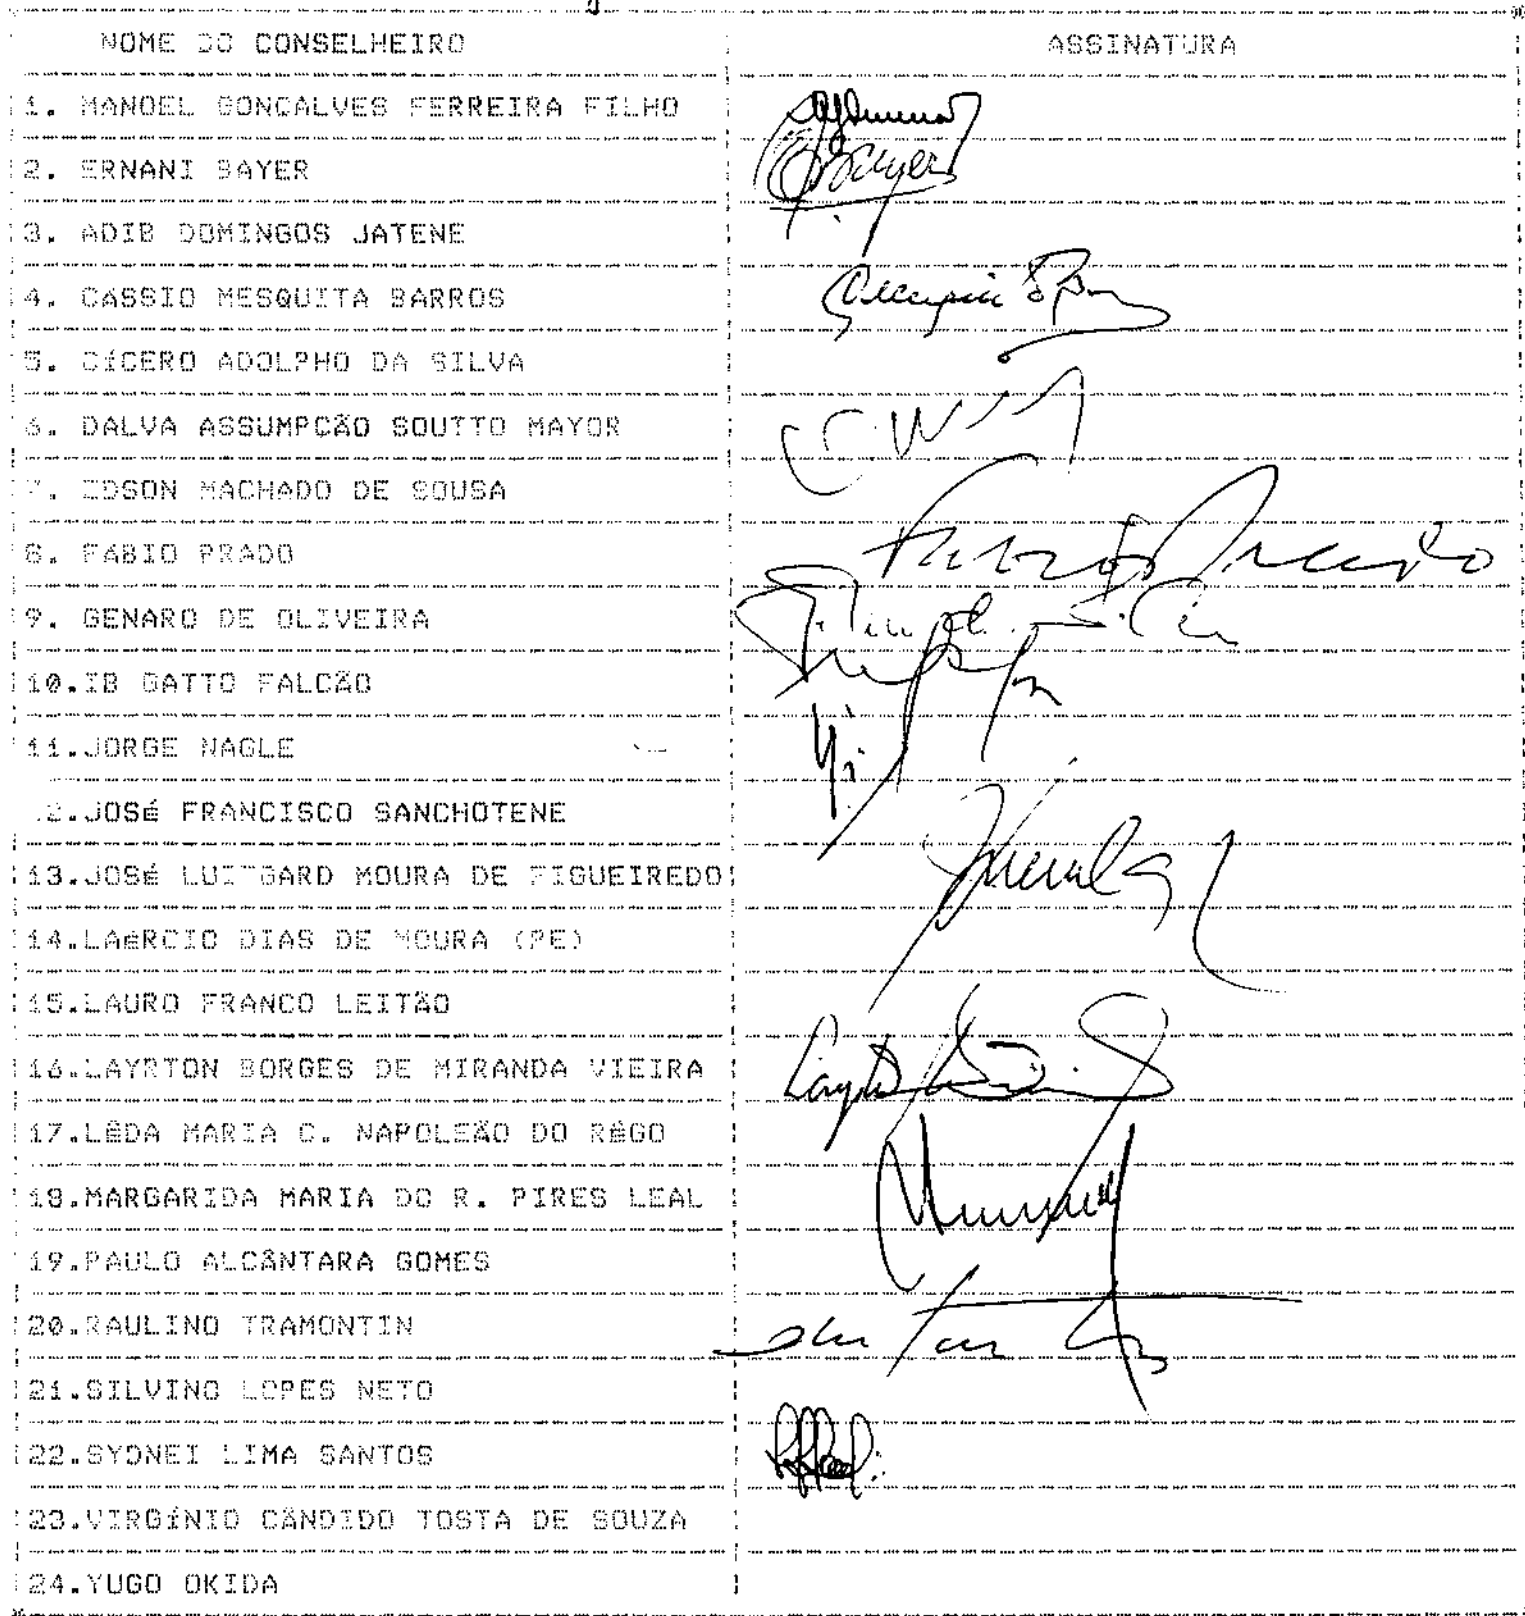 NOME DO CONSELHEIRO ASSINATURA
1. MANOEL GONCALVES FERREIRA FILHO
2. ERNANI BAYER Bayer
3. ADIB DOMINGOS JATENE
4. CASSIO MESQUITA BARROS
5. CÍCERO ADOLPHO DA SILVA
6. DALVA ASSUMPCÃO SOUTTO MAYOR
7. EDSON MACHADO DE SOUSA
8. FÁBIO PRADO
9. GENARO DE OLIVEIRA
10.IB GATTO FALCÃO
11.JORGE NAGLE
12.JOSÉ FRANCISCO SANCHOTENE
13.JOSÉ LUITGARD MOURA DE FIGUEIREDO
14.LAÉRCIO DIAS DE MOURA (PE)
15.LAURO FRANCO LEITÃO
16.LAYRTON BORGES DE MIRANDA VIEIRA
17.LÊDA MARIA C. NAPOLEÃO DO RÊGO
18.MARGARIDA MARIA DO R. PIRES LEAL
19.PAULO ALCÂNTARA GOMES
20.RAULINO TRAMONTIN
21.SILVINO LOPES NETO
22.SYDNEI LIMA SANTOS
23.VIRGÍNIO CÂNDIDO TOSTA DE SOUZA
24.YUGO OKIDA